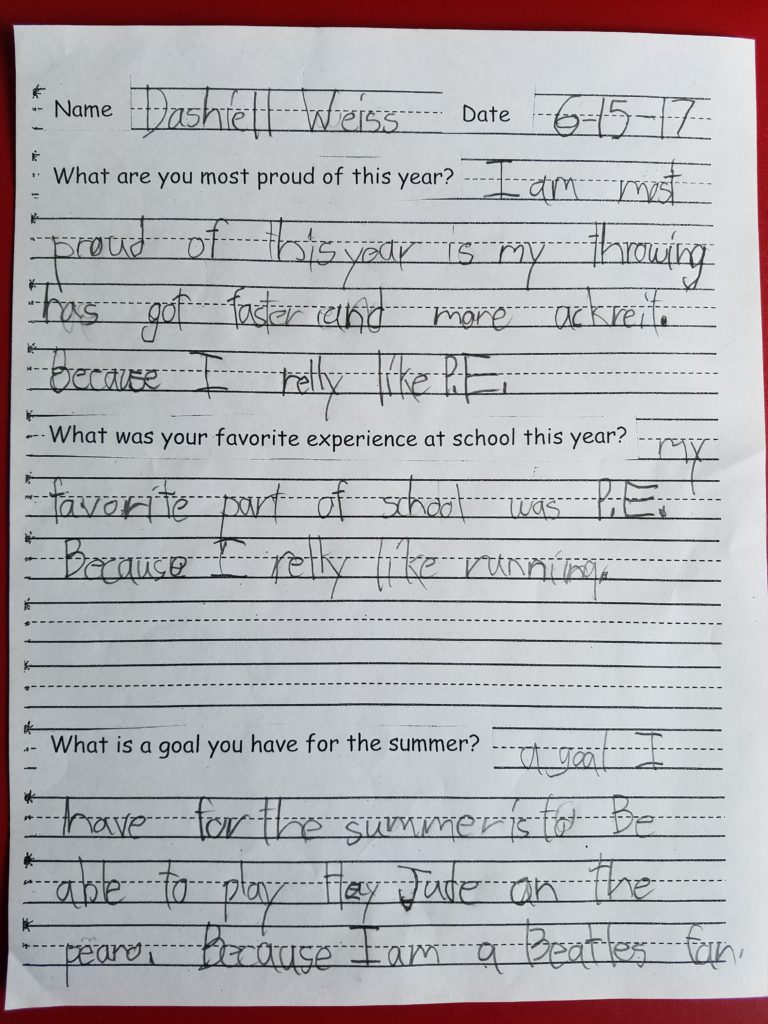 Name Dashiell Weiss Date 6-15-17
What are you most proud of this year? I am most
proud of this year is my throwing
has got faster and more ackreit.
Because I relly like P.E.
What was your favorite experience at school this year? my
favorite part of school was P.E.
Because I relly like running.
What is a goal you have for the summer? a goal I
have for the summer is to Be
able to play Hey Jude on the
peano. Because I am a Beatles fan.